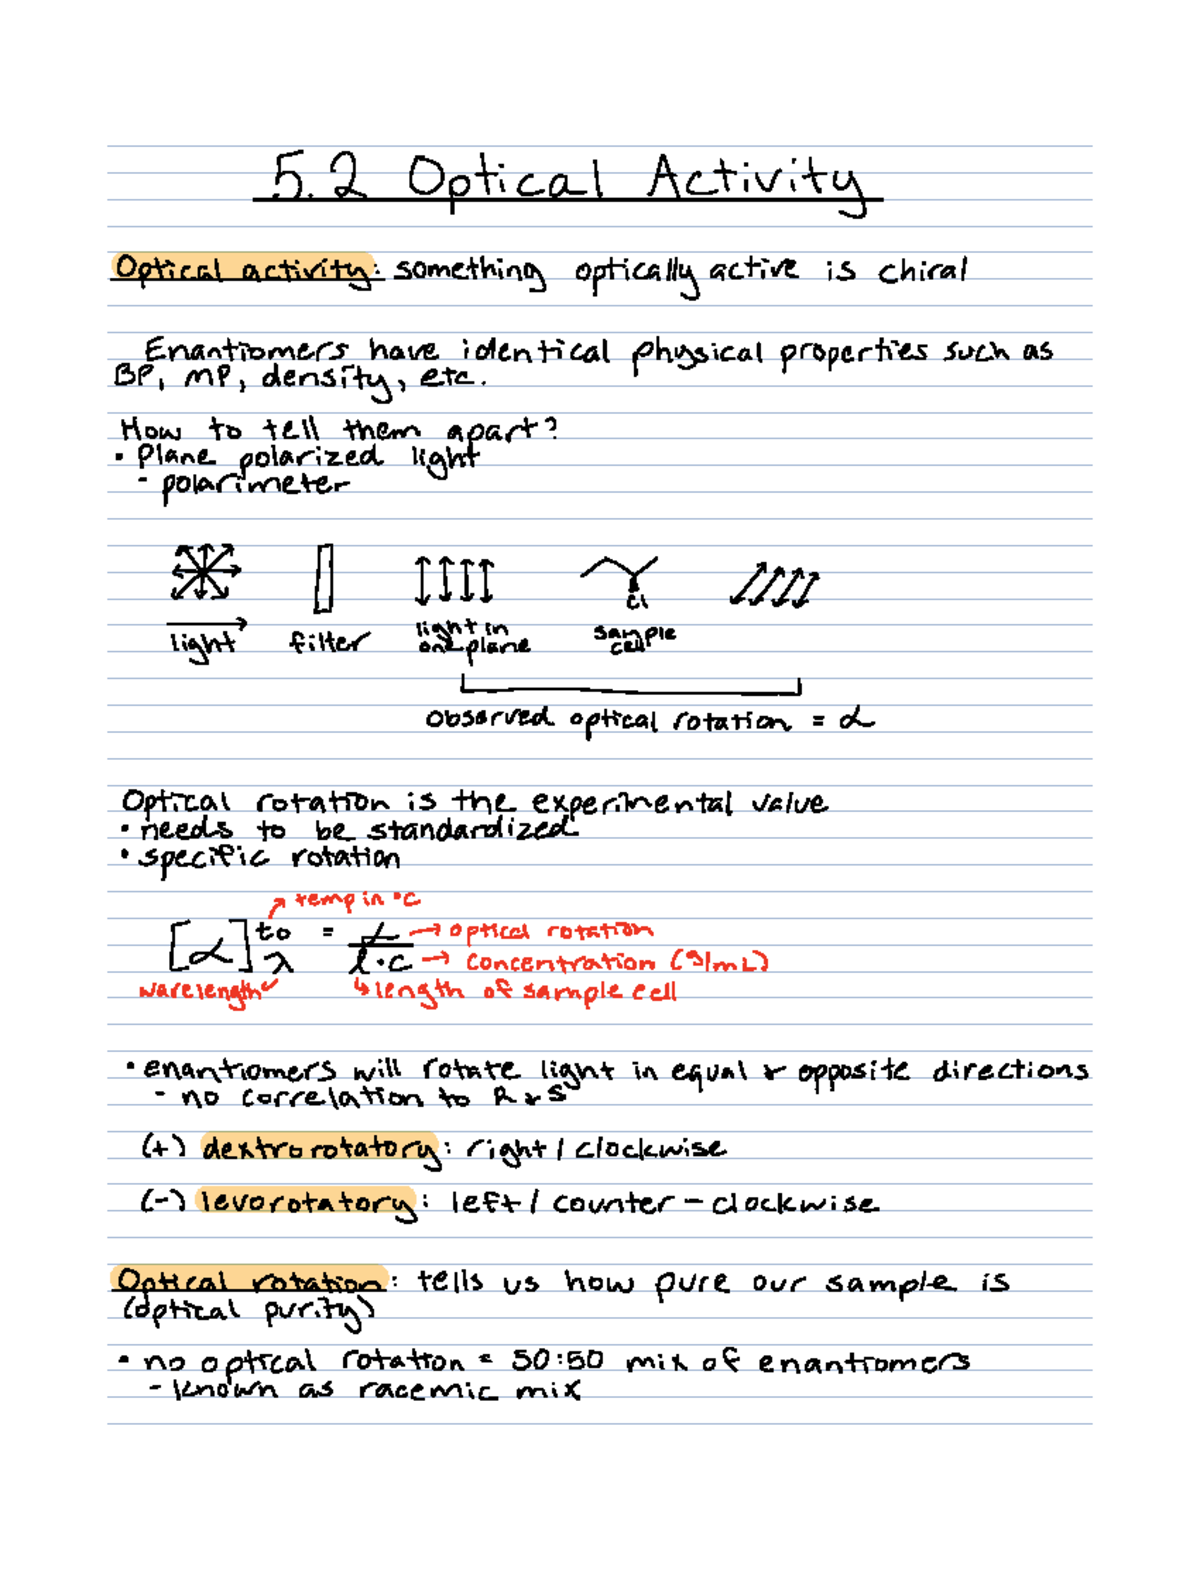 5.2 Optical Activity
Optical activity: something optically active is chiral
Enantiomers have identical physical properties such as
BP, MP, density, etc.
How to tell them apart?
• Plane polarized light
- polarimeter
Cl
light filter light in one plane sample cell
observed optical rotation = α
Optical rotation is the experimental value
• needs to be standardized
• specific rotation
→ temp in °C
[α] to λ = α / l · c
→ optical rotation
→ concentration (g/mL)
wavelength ↳ length of sample cell
• enantiomers will rotate light in equal & opposite directions
- no correlation to R & S
(+) dextrorotatory: right / clockwise
(-) levorotatory: left / counter-clockwise
Optical rotation: tells us how pure our sample is
(optical purity)
• no optical rotation = 50:50 mix of enantiomers
- known as racemic mix